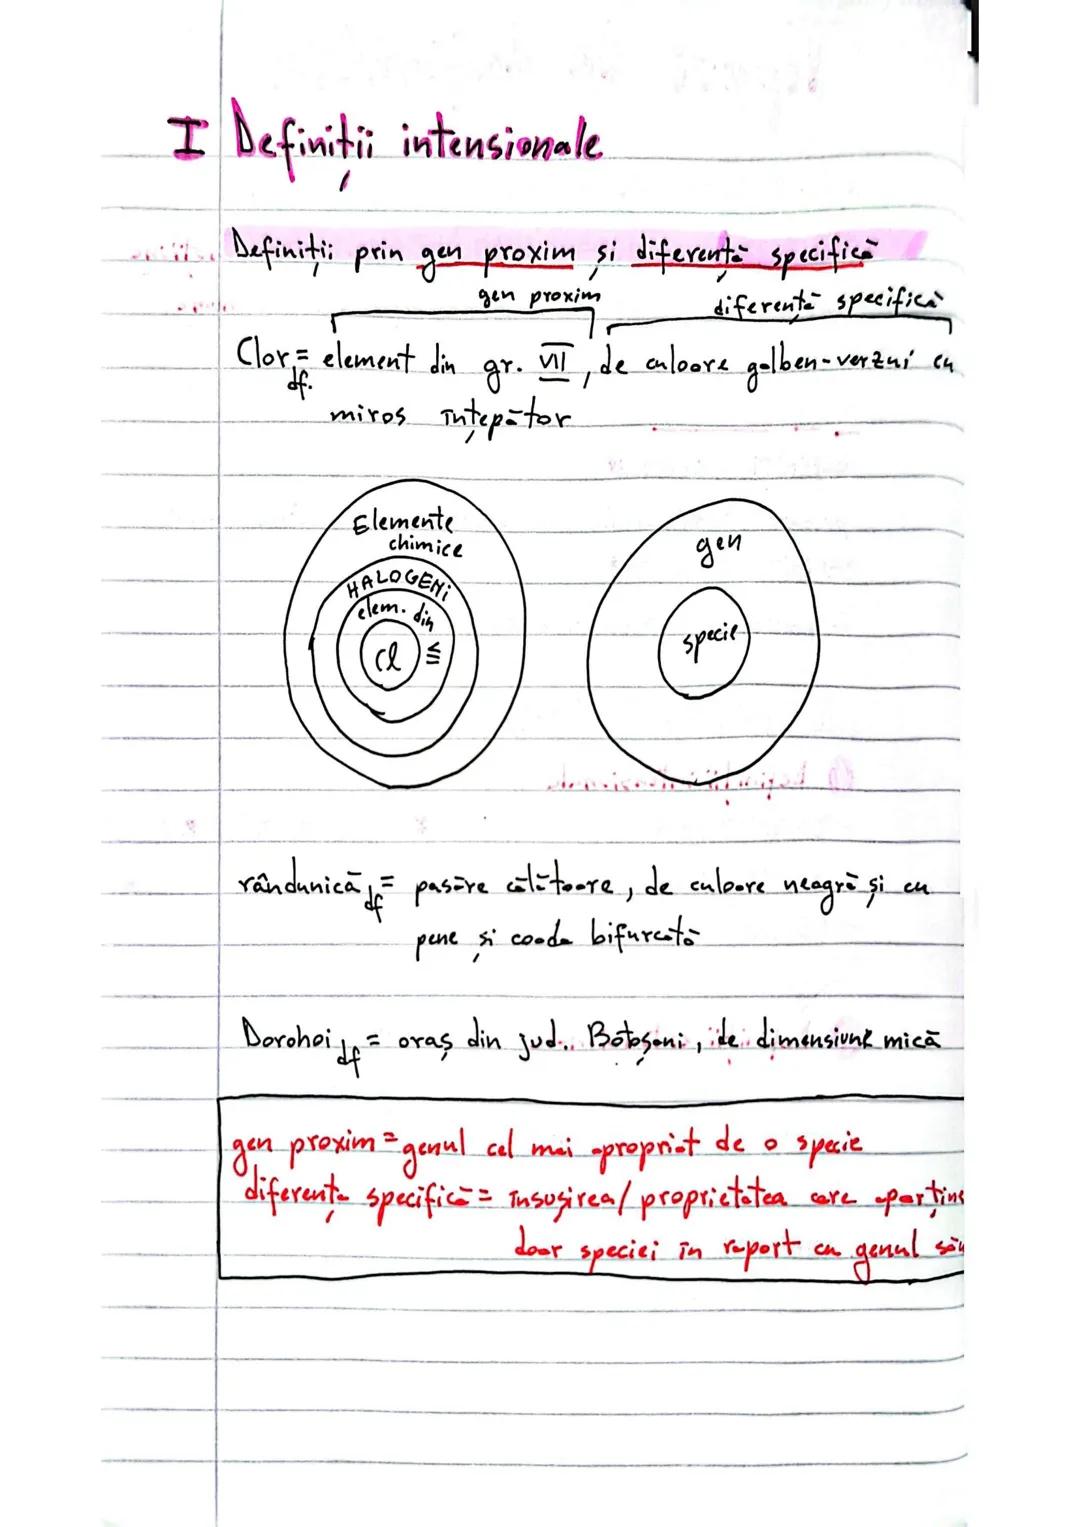 I Definiții intensionale
Definiții prin gen proxim și diferență specifică
gen proxim diferență specifică
Clor =df. element din gr. VII, de culoare galben-verzui cu
miros înțepător
Elemente
chimice
HALOGENI
elem. din
VII
Cl
gen
specie
rândunică =df pasăre călătoare, de culoare neagră și cu
pene și coada bifurcată
Dorohoi =df oraș din jud. Botoșani, de dimensiune mică
gen proxim = genul cel mai apropriat de o specie
diferența specifică = însușirea/ proprietatea care aparține
doar speciei în raport cu genul său